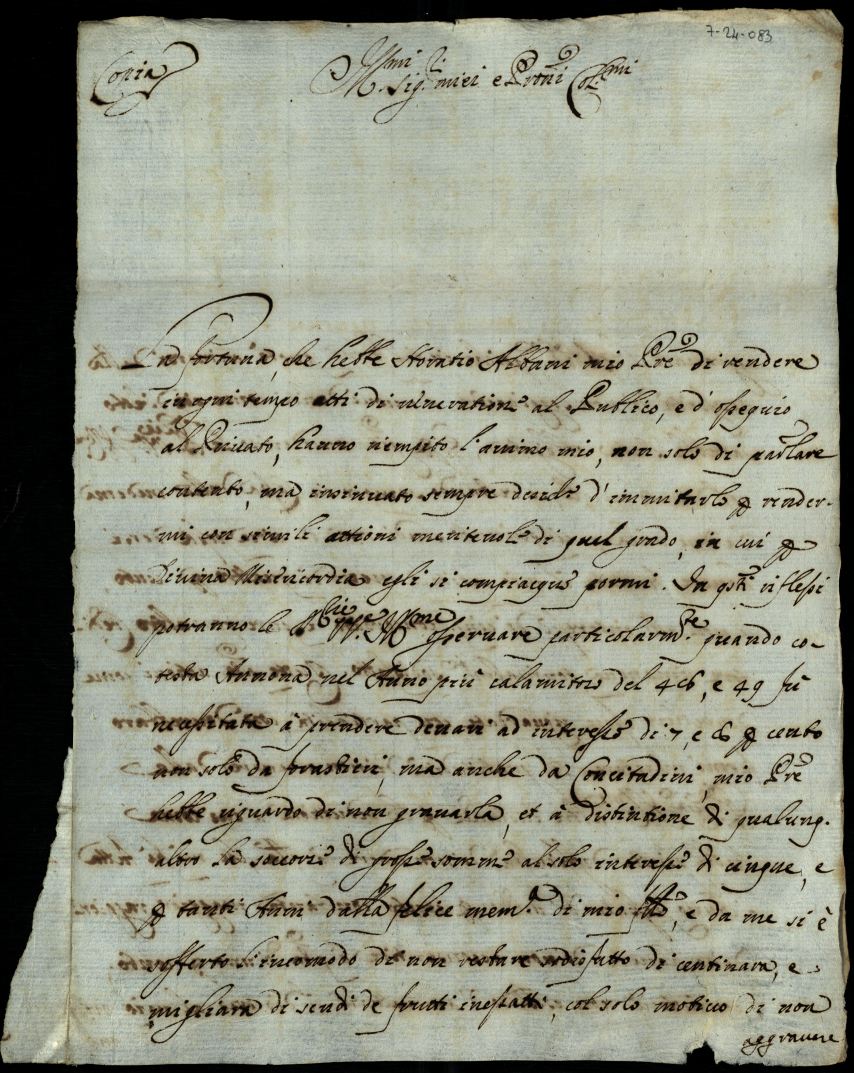 7-24-083
Copia
Ill.mi Sig.ri miei e Pron̄i Col.mi
La fortuna, che hebbe Horatio Albani mio Pre di rendere
in ogni tempo atti di veneratione al Publico, e d'ossequio
al Privato, hanno riempito l'animo mio, non solo di
contento, ma insinuato sempre desid.o d'immitarlo p render-
mi con simili attioni meritevole di quel grado, in cui p
Divina Misericordia egli si compiacque pormi. Da qsti riflessi
potranno le Ill.me osservare particolarm.te quando co-
testa Annona nel Anno più calamitoso del 48, e 49 fù
necessitata à prendere denari ad interesse di 7, e 8 p cento
non solo da forastieri, ma anche da Concitadini, mio Pre
hebbe riguardo di non gravarla, et à distintione di qualunq.
altro la soccorse di grosse somme al solo interesse di cinque, e
p tanti Anni dalla felice mem.a di mio fllo, e da me si è
sofferto l'incomodo di non restare sodisfatto di centinara, e
migliara di scudi de frutti inesatti, col solo motivo di non
aggravare